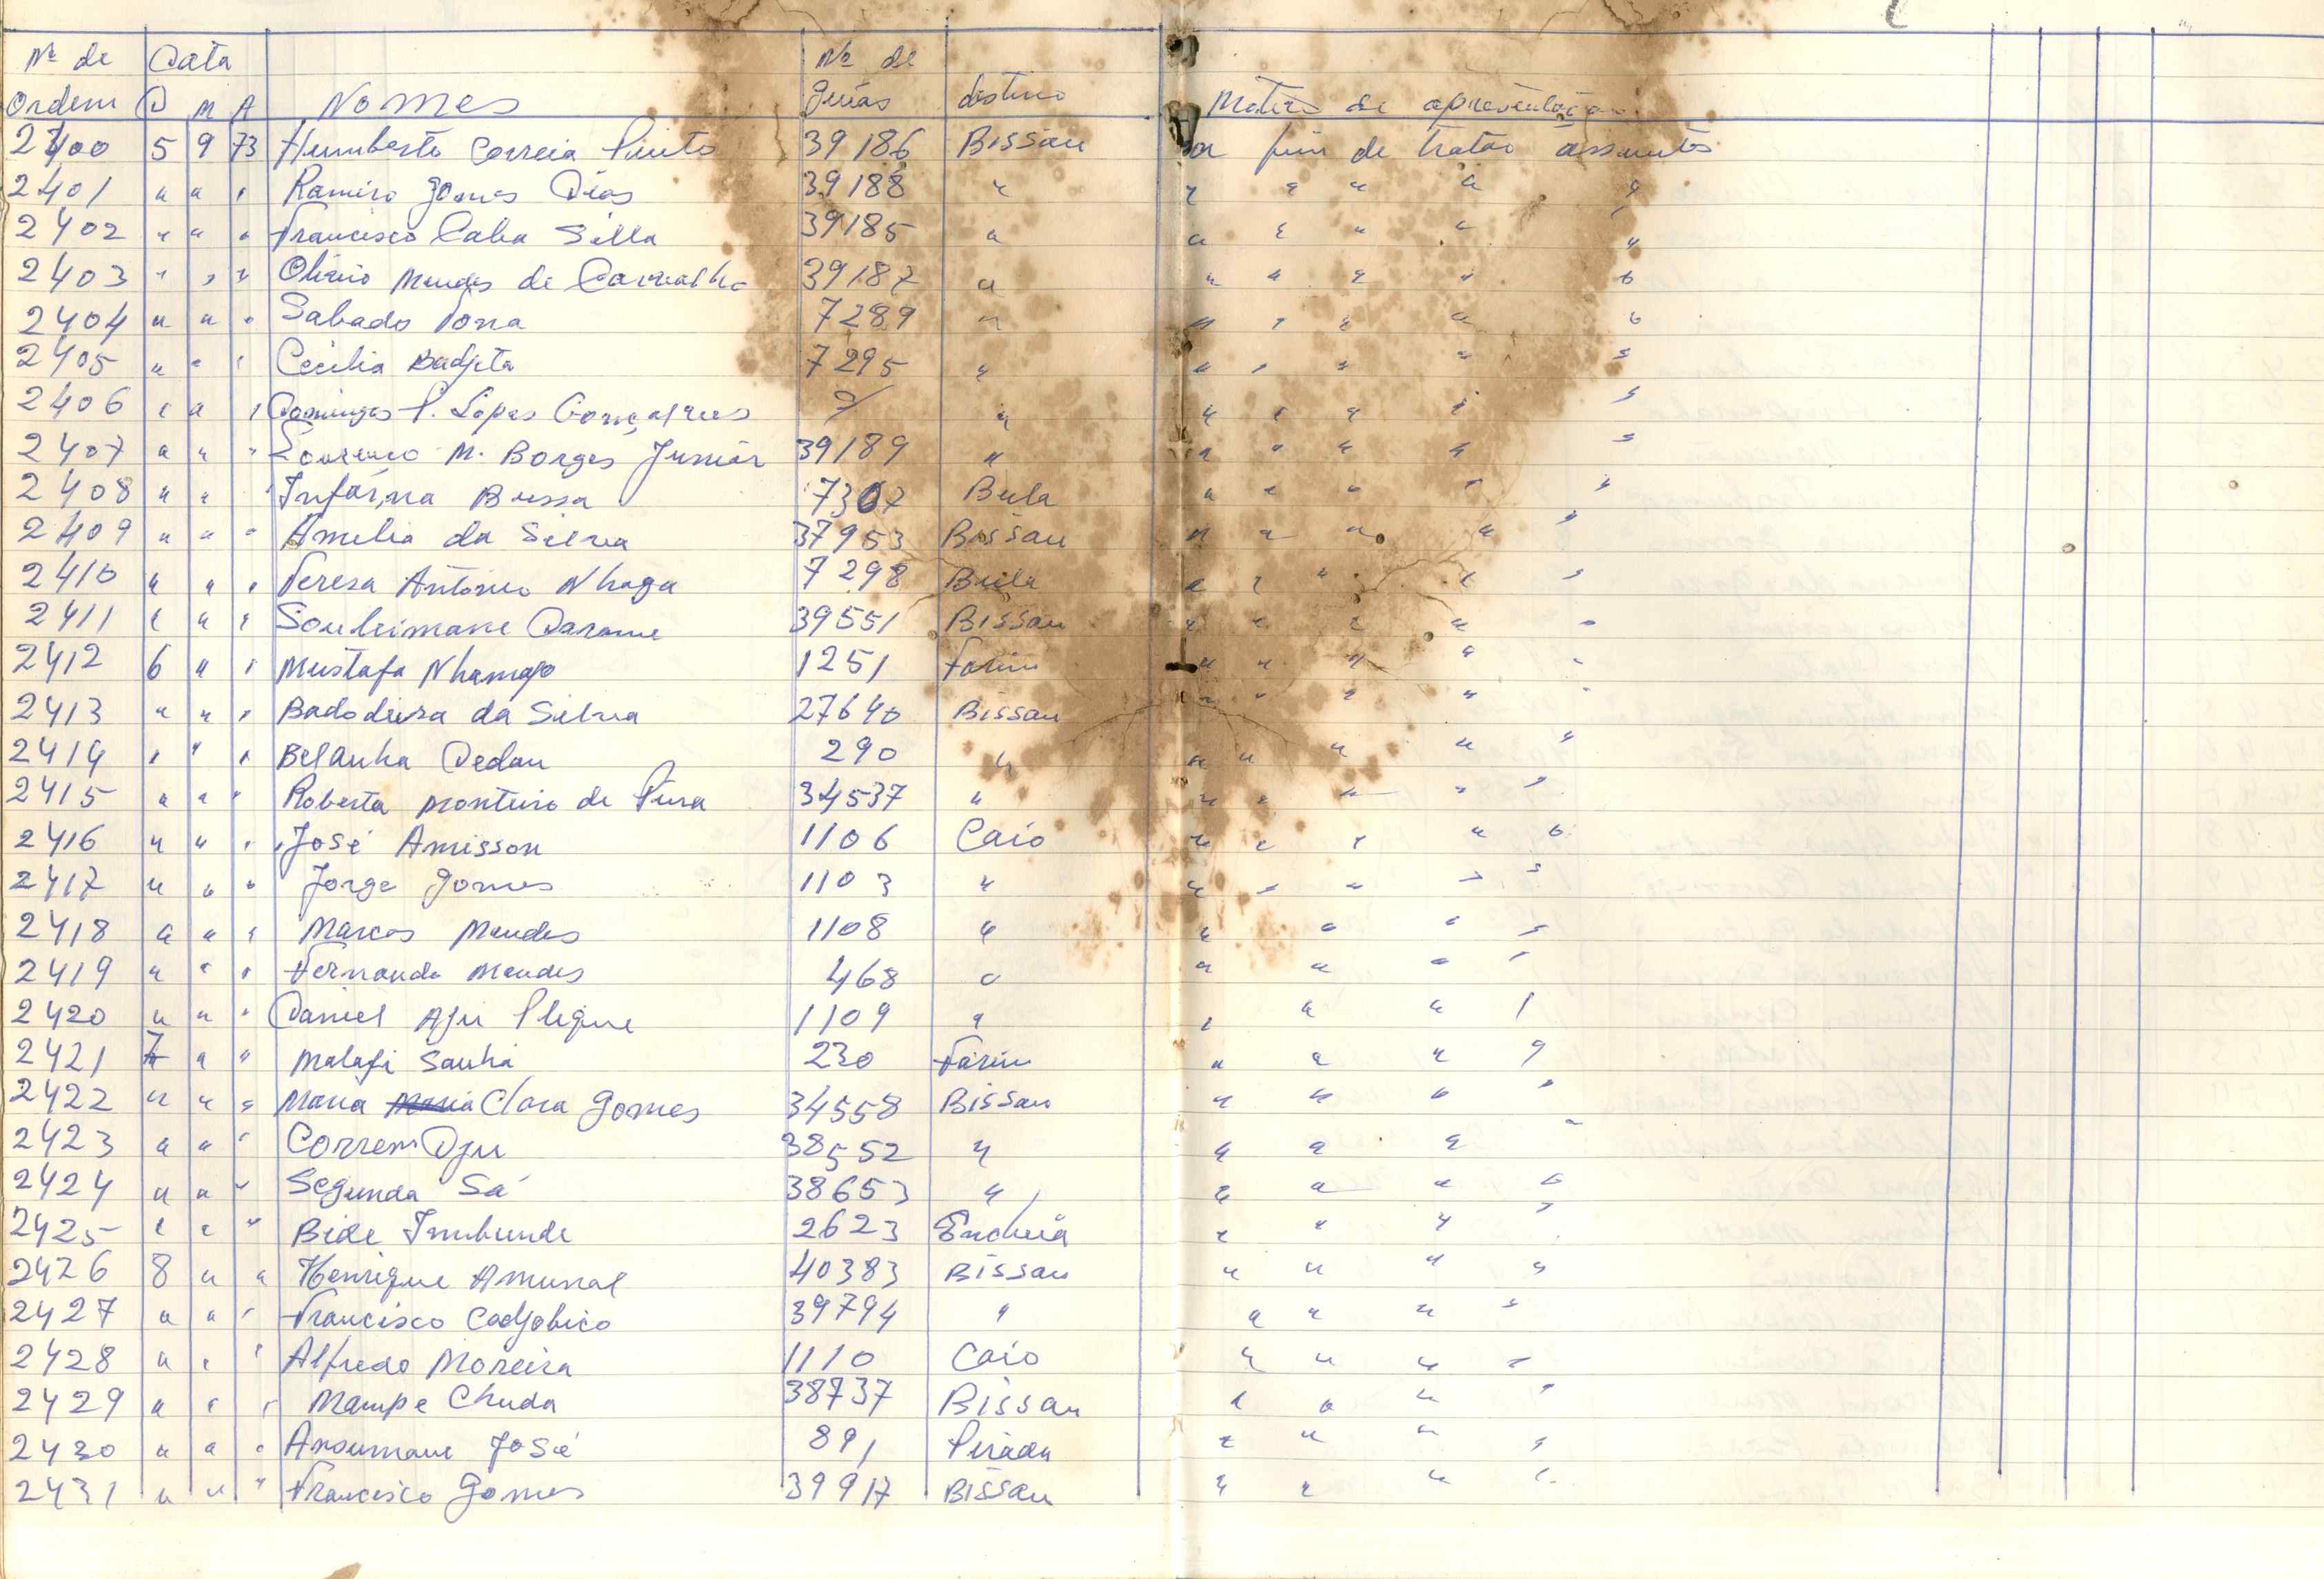 Nº de Data Nº de
Ordem D M A Nomes guias destino Motivo de apresentação
2400 5 9 73 Humberto Correia Pinto 39186 Bissau a fim de tratar assuntos
2401 " " " Ramiro Gomes Dias 39188 " " " " " "
2402 " " " Francisco Caba Silla 39185 " " " " " "
2403 " " " Olivio Mendes de Carvalho 39187 " " " " " "
2404 " " " Sabado 7289 " " " " " "
2405 " " " Cecilia Badjeta 7295 " " " " " "
2406 " " " Domingas P. Lopes Gonçalves " " " " " "
2407 " " " Lourenco M. Borges Junior 39189 " " " " " "
2408 " " " Bussa 7307 Bula " " " " "
2409 " " " Amelia da Silva 37953 Bissau " " " " "
2410 " " " Teresa António Nhaga 7298 Bula " " " " "
2411 " " " Souleimane Darame 39551 Bissau " " " " "
2412 6 " " Mustafa 1251 Farim " " " " "
2413 " " " da Silva 27640 Bissau " " " " "
2414 " " " Belanha Dedau 290 " " " " " "
2415 " " " Roberta Monteiro de Pina 34537 " " " " " "
2416 " " " José Amisson 1106 Caio " " " " "
2417 " " " Jorge Gomes 1103 " " " " " "
2418 " " " Marcos Mendes 1108 " " " " "
2419 " " " Fernando Mendes 468 " " " " "
2420 " " " Daniel 1109 " " " " "
2421 7 " " Malafi Sanhá 230 Farim " " " "
2422 " " " Maria Clara Gomes 34558 Bissau " " " "
2423 " " " Correm Dju 38552 " " " " "
2424 " " " Segunda Sá 38653 " " " " "
2425 " " " Bide Imbunde 2623 Encheia " " " "
2426 8 " " Henrique Amunal 40383 Bissau " " " "
2427 " " " Francisco Codjobico 39794 " " " " "
2428 " " " Alfredo Moreira 1110 Caio " " " "
2429 " " " Mampe Chuda 38737 Bissau " " " "
2430 " " " Ansumane José 891 Pirada " " " "
2431 " " " Francisco Gomes 39917 Bissau " " " "